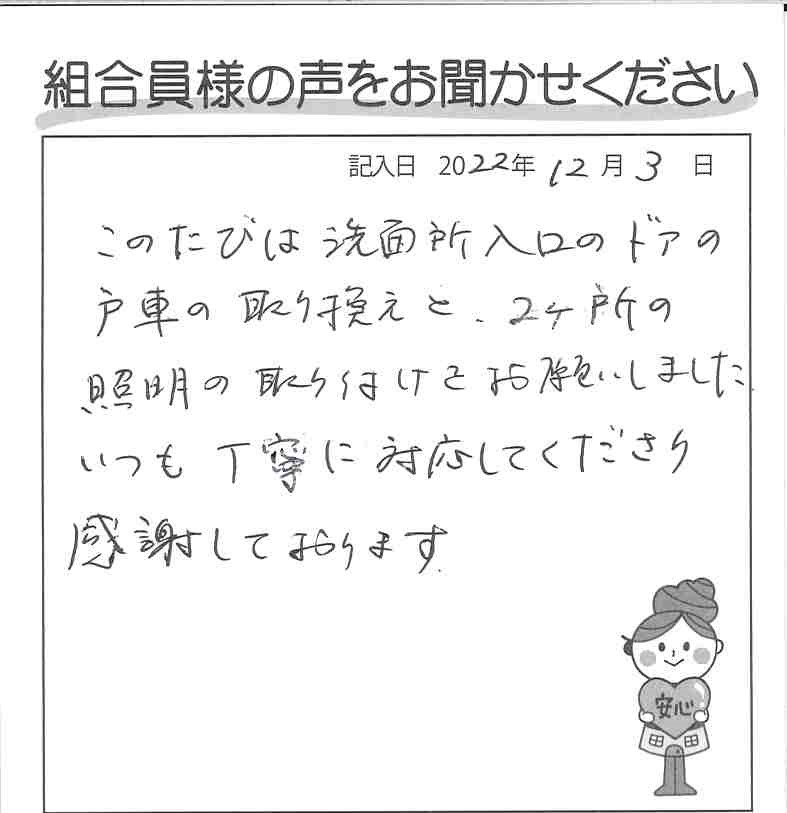 組合員様の声をお聞かせください
記入日 2022年 12月 3日
このたびは 洗面所入口のドアの
戸車の取り換えと、2ケ所の
照明の取り付けをお願いしました
いつも丁寧に対応してくださり
感謝しております
安心